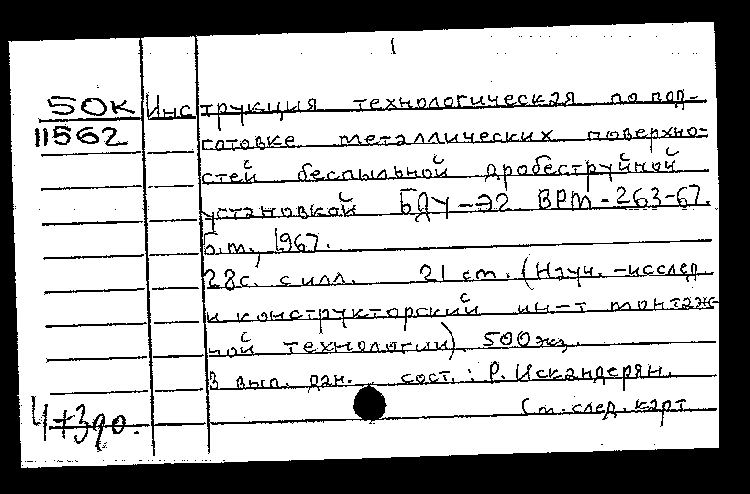 1
50К Инструкция технологическая по под-
11562 готовке металлических поверхно-
стей беспыльной дробеструйной
установкой БДУ-Э2 ВРМ-263-67.
б.м., 1967.
28с. с илл. 21 см. (Науч.-исслед.
и конструкторский ин-т монтаж-
ной технологии). 500 экз.
В вып. дан. сост.: Р. Искандерян.
См. след. карт